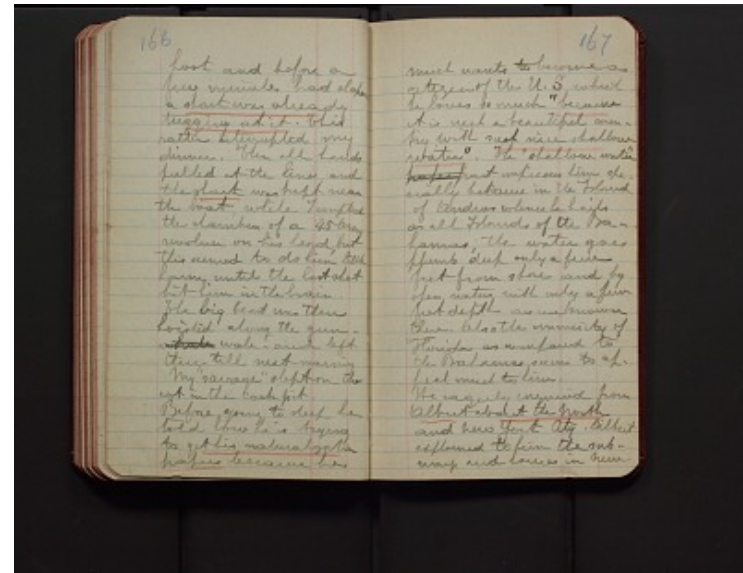 166
boat and before a
few minutes had elapsed
a shark was already
tugging at it. This
rather interrupted my
dinner. Then all hands
pulled at the line, and
the shark was kept near
the boat, while I emptied
the chambers of a 45 cal
revolver on his head, but
this seemed to do him little
harm until the last shot
hit him in the brain
The big beast was then
hoisted along the gun-
wale and left
there till next morning
My "savage" slept on the
cot in the cock pit
Before going to sleep he
told how he is trying
to get his naturalization
papers because he
167
much wants to become a
citizen of the U.S. which
he loves so much "because
it is such a beautiful coun-
try with such nice shallow
water". The "shallow water
part impresses him spe-
cially because in the Island
of Andros whence he hails
as all Islands of the Ba-
hamas, the water goes
deep only a few
feet from shore and by
open water with only a few
feet depth is unknown
there. Also the immensity of
Florida as compared to
the Bahamas seem to ap-
peal much to him.
He eagerly inquired from
Albert about the North
and New York City. Albert
explained to him the sub-
way and houses in New